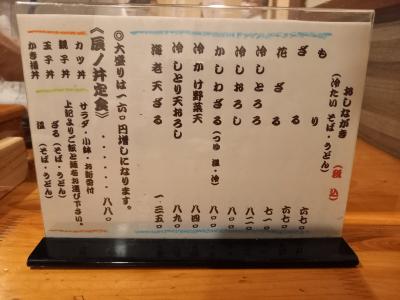 おしながき （税込）
（冷たい そば・うどん）
もり 六七〇
ざる 六七〇
花ざる 七一〇
冷しとろろ 八二〇
冷しおろし 八一〇
かしわざる（つゆ 温・冷） 八二〇
冷かけ野菜天 八四〇
冷しとり天おろし 八九〇
海老天ざる 一二五〇
◎大盛りは一六〇円増しになります。
《辰ノ丼定食》・・・・・・八八〇
サラダ・小鉢・お新香付
上記よりご飯と麺をお選び下さい。
カツ丼
親子丼 ざる（そば・うどん）
玉子丼 温（そば・うどん）
かき揚丼